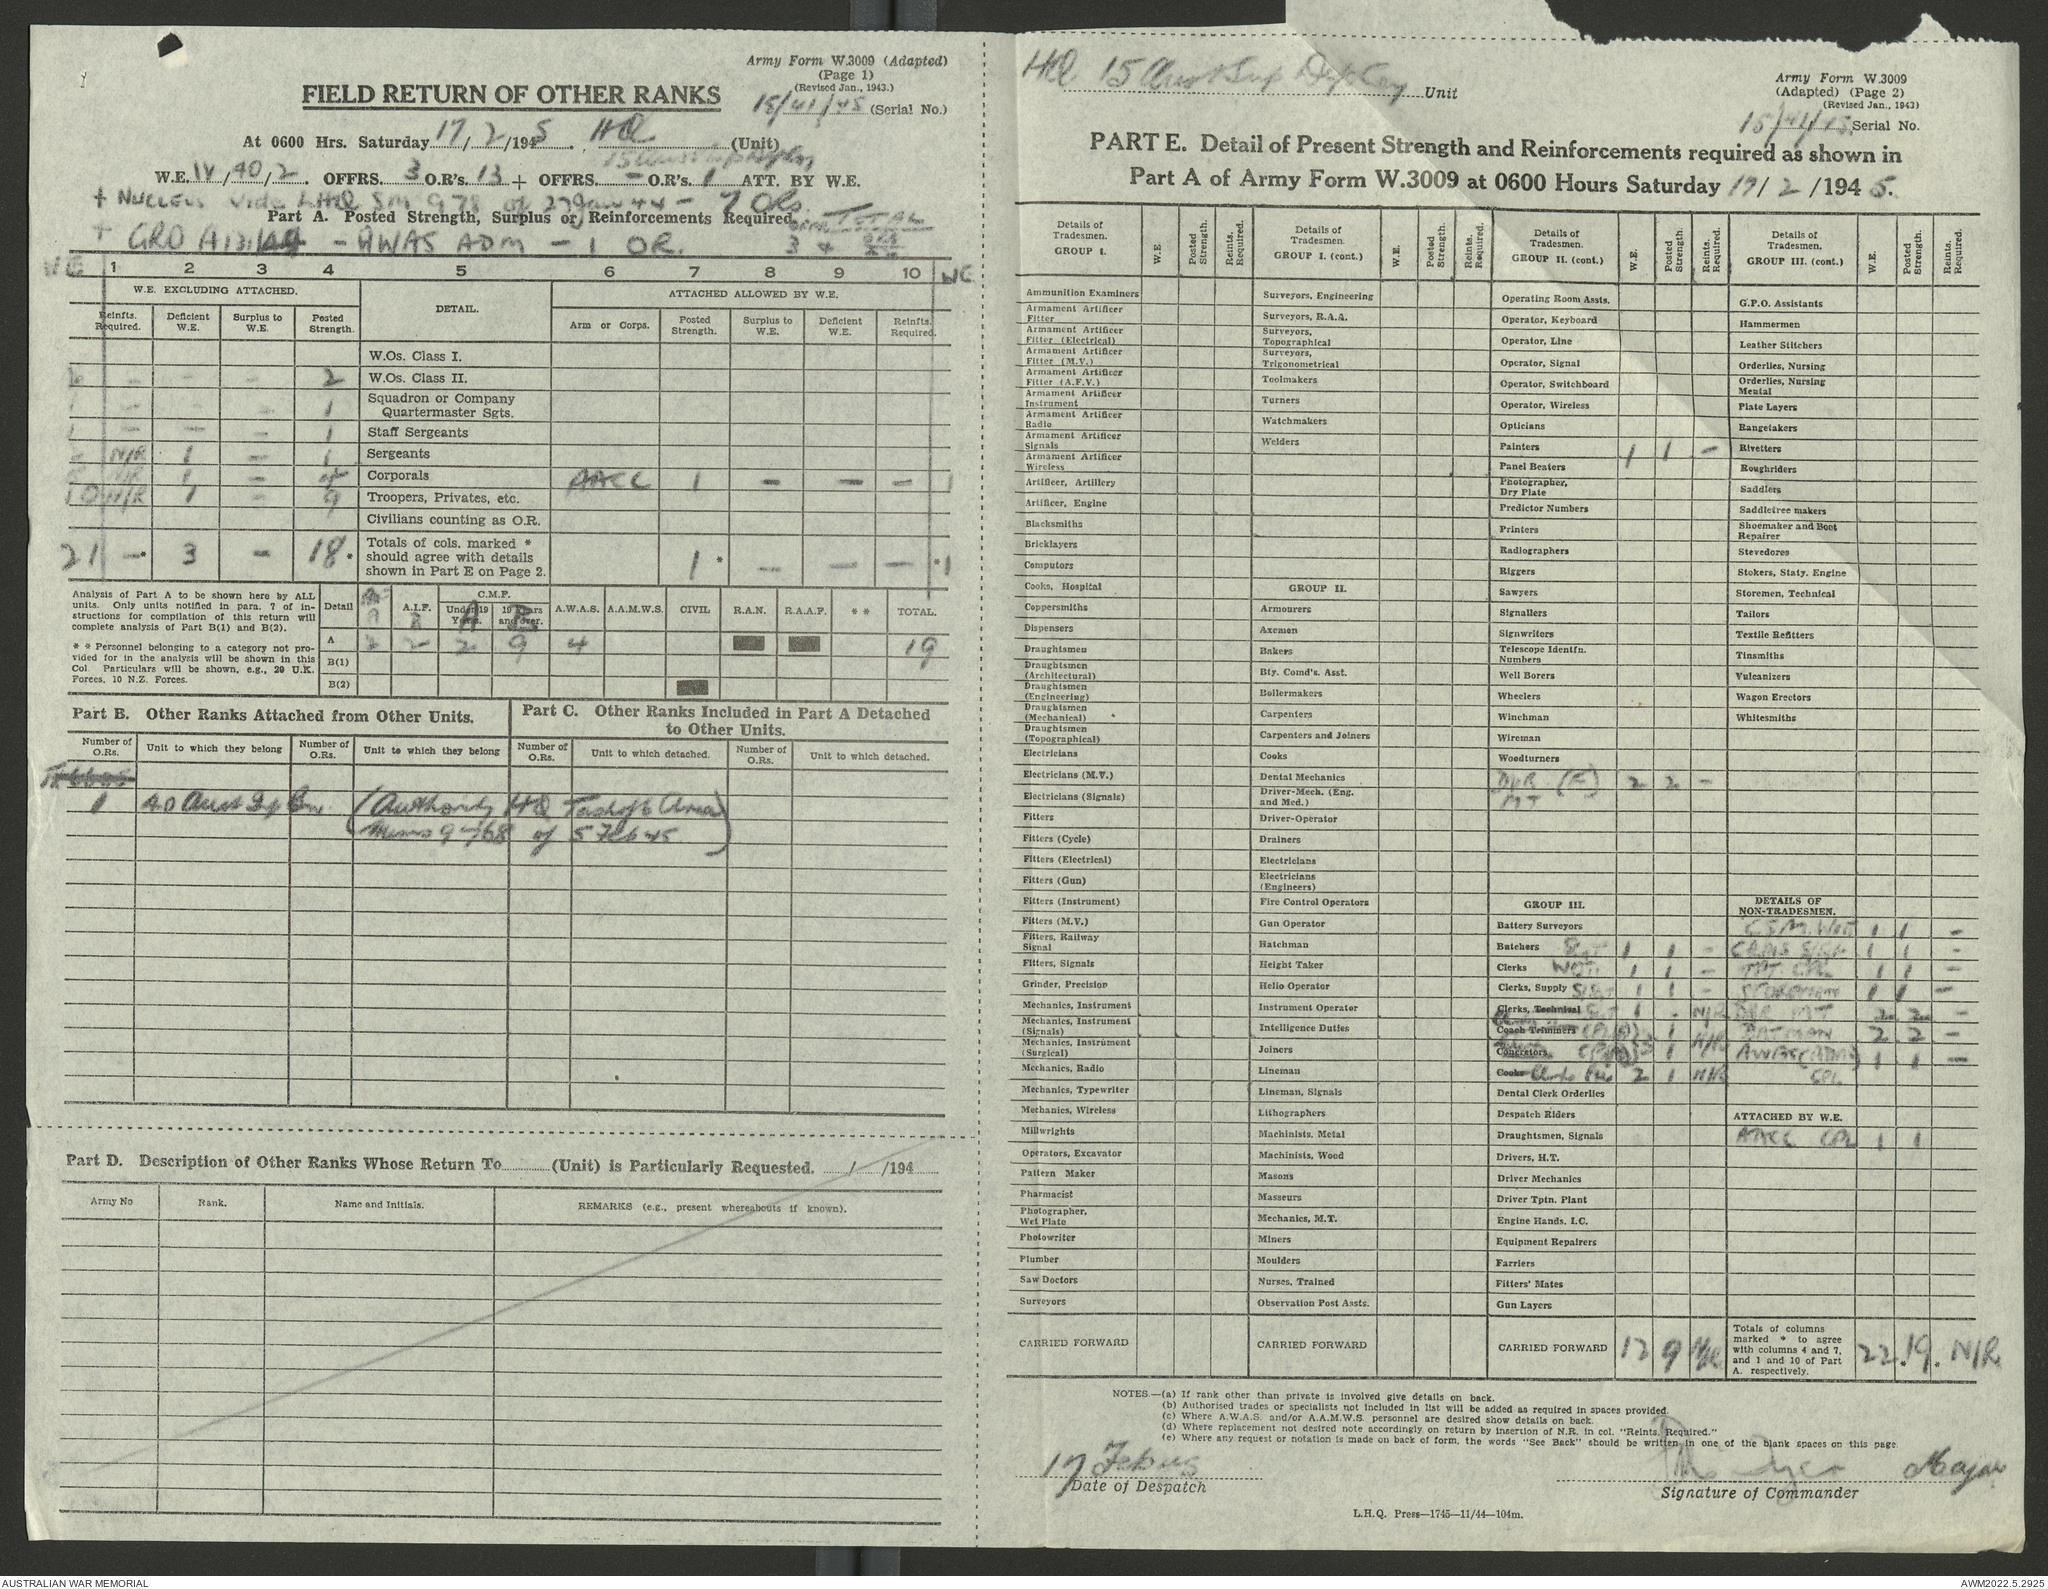 Army Form W.3009 (Adapted)
(Page 1)
(Revised Jan., 1943.)
FIELD RETURN OF OTHER RANKS
15/41/45 (Serial No.)
At 0600 Hrs. Saturday 17/2/1945. HQ (Unit)
W.E. IV/40/2. OFFRS. 3 O.R's. 13 + OFFRS. - O.R's. 1 ATT. BY W.E.
+ NUCLEUS vide LHQ SM 978 of 27 Jan 44 - 7 ORs.
Part A. Posted Strength, Surplus or Reinforcements Required.
TOTAL
+ GRO A131/44 - AWAS ADM - 1 OR. 3 +
WE 1 2 3 4 5 6 7 8 9 10 WE
W.E. EXCLUDING ATTACHED. DETAIL. ATTACHED ALLOWED BY W.E.
Reinfts. Required. Deficient W.E. Surplus to W.E. Posted Strength. Arm or Corps. Posted Strength. Surplus to W.E. Deficient W.E. Reinfts. Required.
W.Os. Class I.
- - - 2 W.Os. Class II.
1 - - - 1 Squadron or Company Quartermaster Sgts.
1 - - - 1 Staff Sergeants
N/R 1 - 1 Sergeants
N/R 1 - Corporals AACC 1 - - - 1
10 N/R 1 - 9 Troopers, Privates, etc.
Civilians counting as O.R.
21 -* 3 - 18* Totals of cols. marked * should agree with details shown in Part E on Page 2. 1* - - - *1
Analysis of Part A to be shown here by ALL units. Only units notified in para. 7 of instructions for compilation of this return will complete analysis of Part B(1) and B(2).
* * Personnel belonging to a category not provided for in the analysis will be shown in this Col. Particulars will be shown, e.g., 20 U.K. Forces, 10 N.Z. Forces.
Detail A.I.F. C.M.F. Under 19 Years. 19 Years and over. A.W.A.S. A.A.M.W.S. CIVIL R.A.N. R.A.A.F. * * TOTAL.
A 2 2 2 9 4 19
B(1)
B(2)
Part B. Other Ranks Attached from Other Units.
Part C. Other Ranks Included in Part A Detached to Other Units.
Number of O.Rs. Unit to which they belong Number of O.Rs. Unit to which they belong Number of O.Rs. Unit to which detached. Number of O.Rs. Unit to which detached.
1 40 Aust Sup (Authority HQ Area
9768 of 5 Feb 45)
Part D. Description of Other Ranks Whose Return To (Unit) is Particularly Requested. / /194
Army No Rank. Name and Initials. REMARKS (e.g., present whereabouts if known).
HQ 15 Aust Sup Dep Coy Unit
Army Form W.3009
(Adapted) (Page 2)
(Revised Jan., 1943)
15/41/45 Serial No.
PART E. Detail of Present Strength and Reinforcements required as shown in
Part A of Army Form W.3009 at 0600 Hours Saturday 17/2/1945.
Details of Tradesmen. GROUP I. W.E. Posted Strength. Reints. Required.
Ammunition Examiners
Armament Artificer Fitter
Armament Artificer Fitter (Electrical)
Armament Artificer Fitter (M.V.)
Armament Artificer Fitter (A.F.V.)
Armament Artificer Instrument
Armament Artificer Radio
Armament Artificer Signals
Armament Artificer Wireless
Artificer, Artillery
Artificer, Engine
Blacksmiths
Bricklayers
Computors
Cooks, Hospital
Coppersmiths
Dispensers
Draughtsmen
Draughtsmen (Architectural)
Draughtsmen (Engineering)
Draughtsmen (Mechanical)
Draughtsmen (Topographical)
Electricians
Electricians (M.V.)
Electricians (Signals)
Fitters
Fitters (Cycle)
Fitters (Electrical)
Fitters (Gun)
Fitters (Instrument)
Fitters (M.V.)
Fitters, Railway Signal
Fitters, Signals
Grinder, Precision
Mechanics, Instrument
Mechanics, Instrument (Signals)
Mechanics, Instrument (Surgical)
Mechanics, Radio
Mechanics, Typewriter
Mechanics, Wireless
Millwrights
Operators, Excavator
Pattern Maker
Pharmacist
Photographer, Wet Plate
Photowriter
Plumber
Saw Doctors
Surveyors
CARRIED FORWARD
Details of Tradesmen. GROUP I. (cont.) W.E. Posted Strength. Reints. Required.
Surveyors, Engineering
Surveyors, R.A.A.
Surveyors, Topographical
Surveyors, Trigonometrical
Toolmakers
Turners
Watchmakers
Welders
GROUP II.
Armourers
Axemen
Bakers
Bty. Comd's. Asst.
Boilermakers
Carpenters
Carpenters and Joiners
Cooks
Dental Mechanics
Driver-Mech. (Eng. and Med.)
Driver-Operator
Drainers
Electricians
Electricians (Engineers)
Fire Control Operators
Gun Operator
Hatchman
Height Taker
Helio Operator
Instrument Operator
Intelligence Duties
Joiners
Lineman
Lineman, Signals
Lithographers
Machinists, Metal
Machinists, Wood
Masons
Masseurs
Mechanics, M.T.
Miners
Moulders
Nurses, Trained
Observation Post Assts.
CARRIED FORWARD
Details of Tradesmen. GROUP II. (cont.) W.E. Posted Strength Reints. Required.
Operating Room Assts.
Operator, Keyboard
Operator, Line
Operator, Signal
Operator, Switchboard
Operator, Wireless
Opticians
Painters 1 1 -
Panel Beaters
Photographer, Dry Plate
Predictor Numbers
Printers
Radiographers
Riggers
Sawyers
Signallers
Signwriters
Telescope Identfn. Numbers
Well Borers
Wheelers
Winchman
Wireman
Woodturners
DVR MT (F) 2 2 -
GROUP III.
Battery Surveyors
Butchers SGT 1 1 -
Clerks WOII 1 1 -
Clerks, Supply S/Sgt 1 1 -
Clerks, Technical SGT 1 - N/R
Coach Trimmers
Concretors
Cooks Clerks Pte 2 1 N/R
Dental Clerk Orderlies
Despatch Riders
Draughtsmen, Signals
Drivers, H.T.
Driver Mechanics
Driver Tptn. Plant
Engine Hands, I.C.
Equipment Repairers
Farriers
Fitters' Mates
Gun Layers
CARRIED FORWARD 12 9 N/R
Details of Tradesmen. GROUP III. (cont.) W.E. Posted Strength. Reints. Required.
G.P.O. Assistants
Hammermen
Leather Stitchers
Orderlies, Nursing
Orderlies, Nursing Mental
Plate Layers
Rangetakers
Rivetters
Roughriders
Saddlers
Saddletree makers
Shoemaker and Boot Repairer
Stevedores
Stokers, Staty. Engine
Storemen, Technical
Tailors
Textile Refitters
Tinsmiths
Vulcanizers
Wagon Erectors
Whitesmiths
DETAILS OF NON-TRADESMEN.
CSM. WOII 1 1 -
CQMS S/Sgt 1 1 -
TPT CPL 1 1 -
STOREMAN 1 1 -
DVR MT 2 2 -
BATMAN 2 2 -
AWAS (ADM) CPL 1 1 -
ATTACHED BY W.E.
AACC CPL 1 1
Totals of columns marked * to agree with columns 4 and 7, and 1 and 10 of Part A. respectively. 22 * 19 * N/R
NOTES.—(a) If rank other than private is involved give details on back.
(b) Authorised trades or specialists not included in list will be added as required in spaces provided.
(c) Where A.W.A.S. and/or A.A.M.W.S. personnel are desired show details on back.
(d) Where replacement not desired note accordingly on return by insertion of N.R. in col. "Reints. Required."
(e) Where any request or notation is made on back of form, the words "See Back" should be written in one of the blank spaces on this page.
17 Feb 45
Date of Despatch
Major
Signature of Commander
L.H.Q. Press—1745—11/44—104m.
AUSTRALIAN WAR MEMORIAL
AWM2022.5.2925